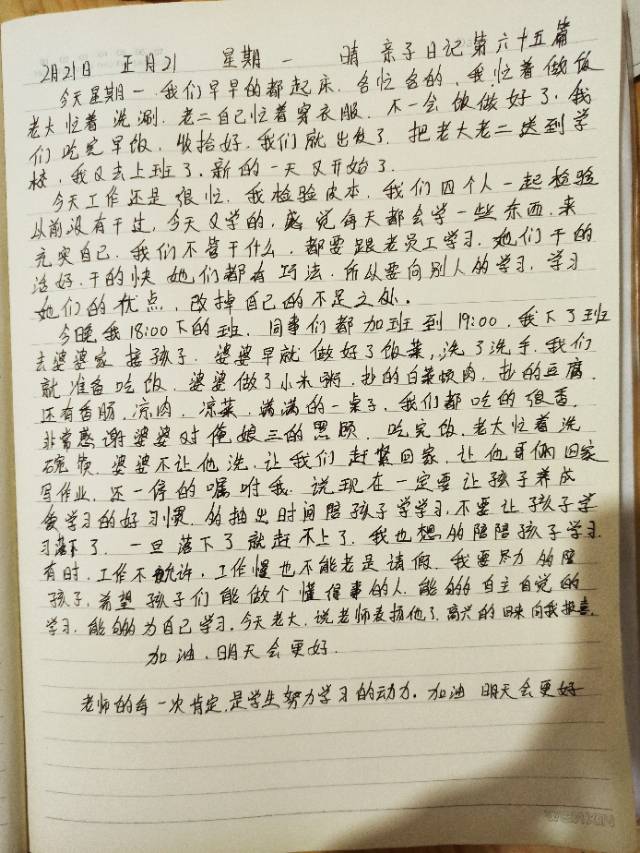 2月21日 正月21 星期一 晴 亲子日记第六十五篇
今天星期一,我们早早的都起床,各忙各的,我忙着做饭
老大忙着洗涮.老二自己忙着穿衣服.不一会饭做好了.我
们吃完早饭,收拾好.我们就出发了.把老大老二送到学
校,我又去上班了.新的一天又开始了.
今天工作还是很忙.我检验皮本,我们四个人一起检验
以前没有干过,今天又学的,感觉每天都会学一些东西.来
充实自己.我们不管干什么,都要跟老员工学习.她们干的
活好.干的快 她们都有巧法.所以要向别人的学习,学习
她们的优点,改掉自己的不足之处。
今晚我18:00下的班.同事们都加班到19:00.我下了班
去婆婆家接孩子.婆婆早就做好了饭菜,洗了洗手,我们
就准备吃饭.婆婆做了小米粥,炒的白菜炖肉.炒的豆腐.
还有香肠.凉肉.凉菜.满满的一桌子.我们都吃的很香.
非常感谢婆婆对俺娘三的照顾.吃完饭.老大忙着洗
碗筷.婆婆不让他洗,让我们赶紧回家.让他哥俩回家
写作业.还一停的嘱咐我.说现在一定要让孩子养成
爱学习的好习惯.的抽出时间陪孩子学学习.不要让孩子学
习落下了.一旦落下了就赶不上了.我也想的陪陪孩子学习.
有时.工作不允许,工作慢也不能老是请假.我要尽力的陪
孩子.希望孩子们能做个懂得事的人.能够的自主自觉的
学习.能够的为自己学习.今天老大.说老师表扬他了.高兴的回来向我报喜.
加油.明天会更好.
老师的每一次肯定.是学生努力学习的动力.加油 明天会更好